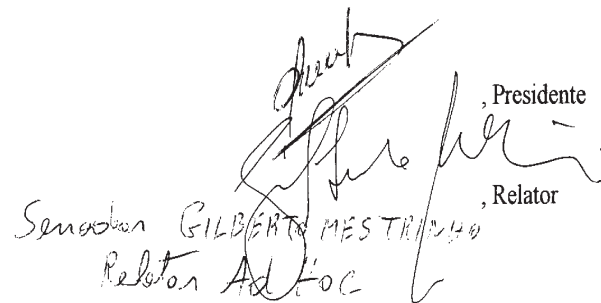 , Presidente
, Relator
Senador GILBERTO MESTRINHO
Relator Ad Hoc